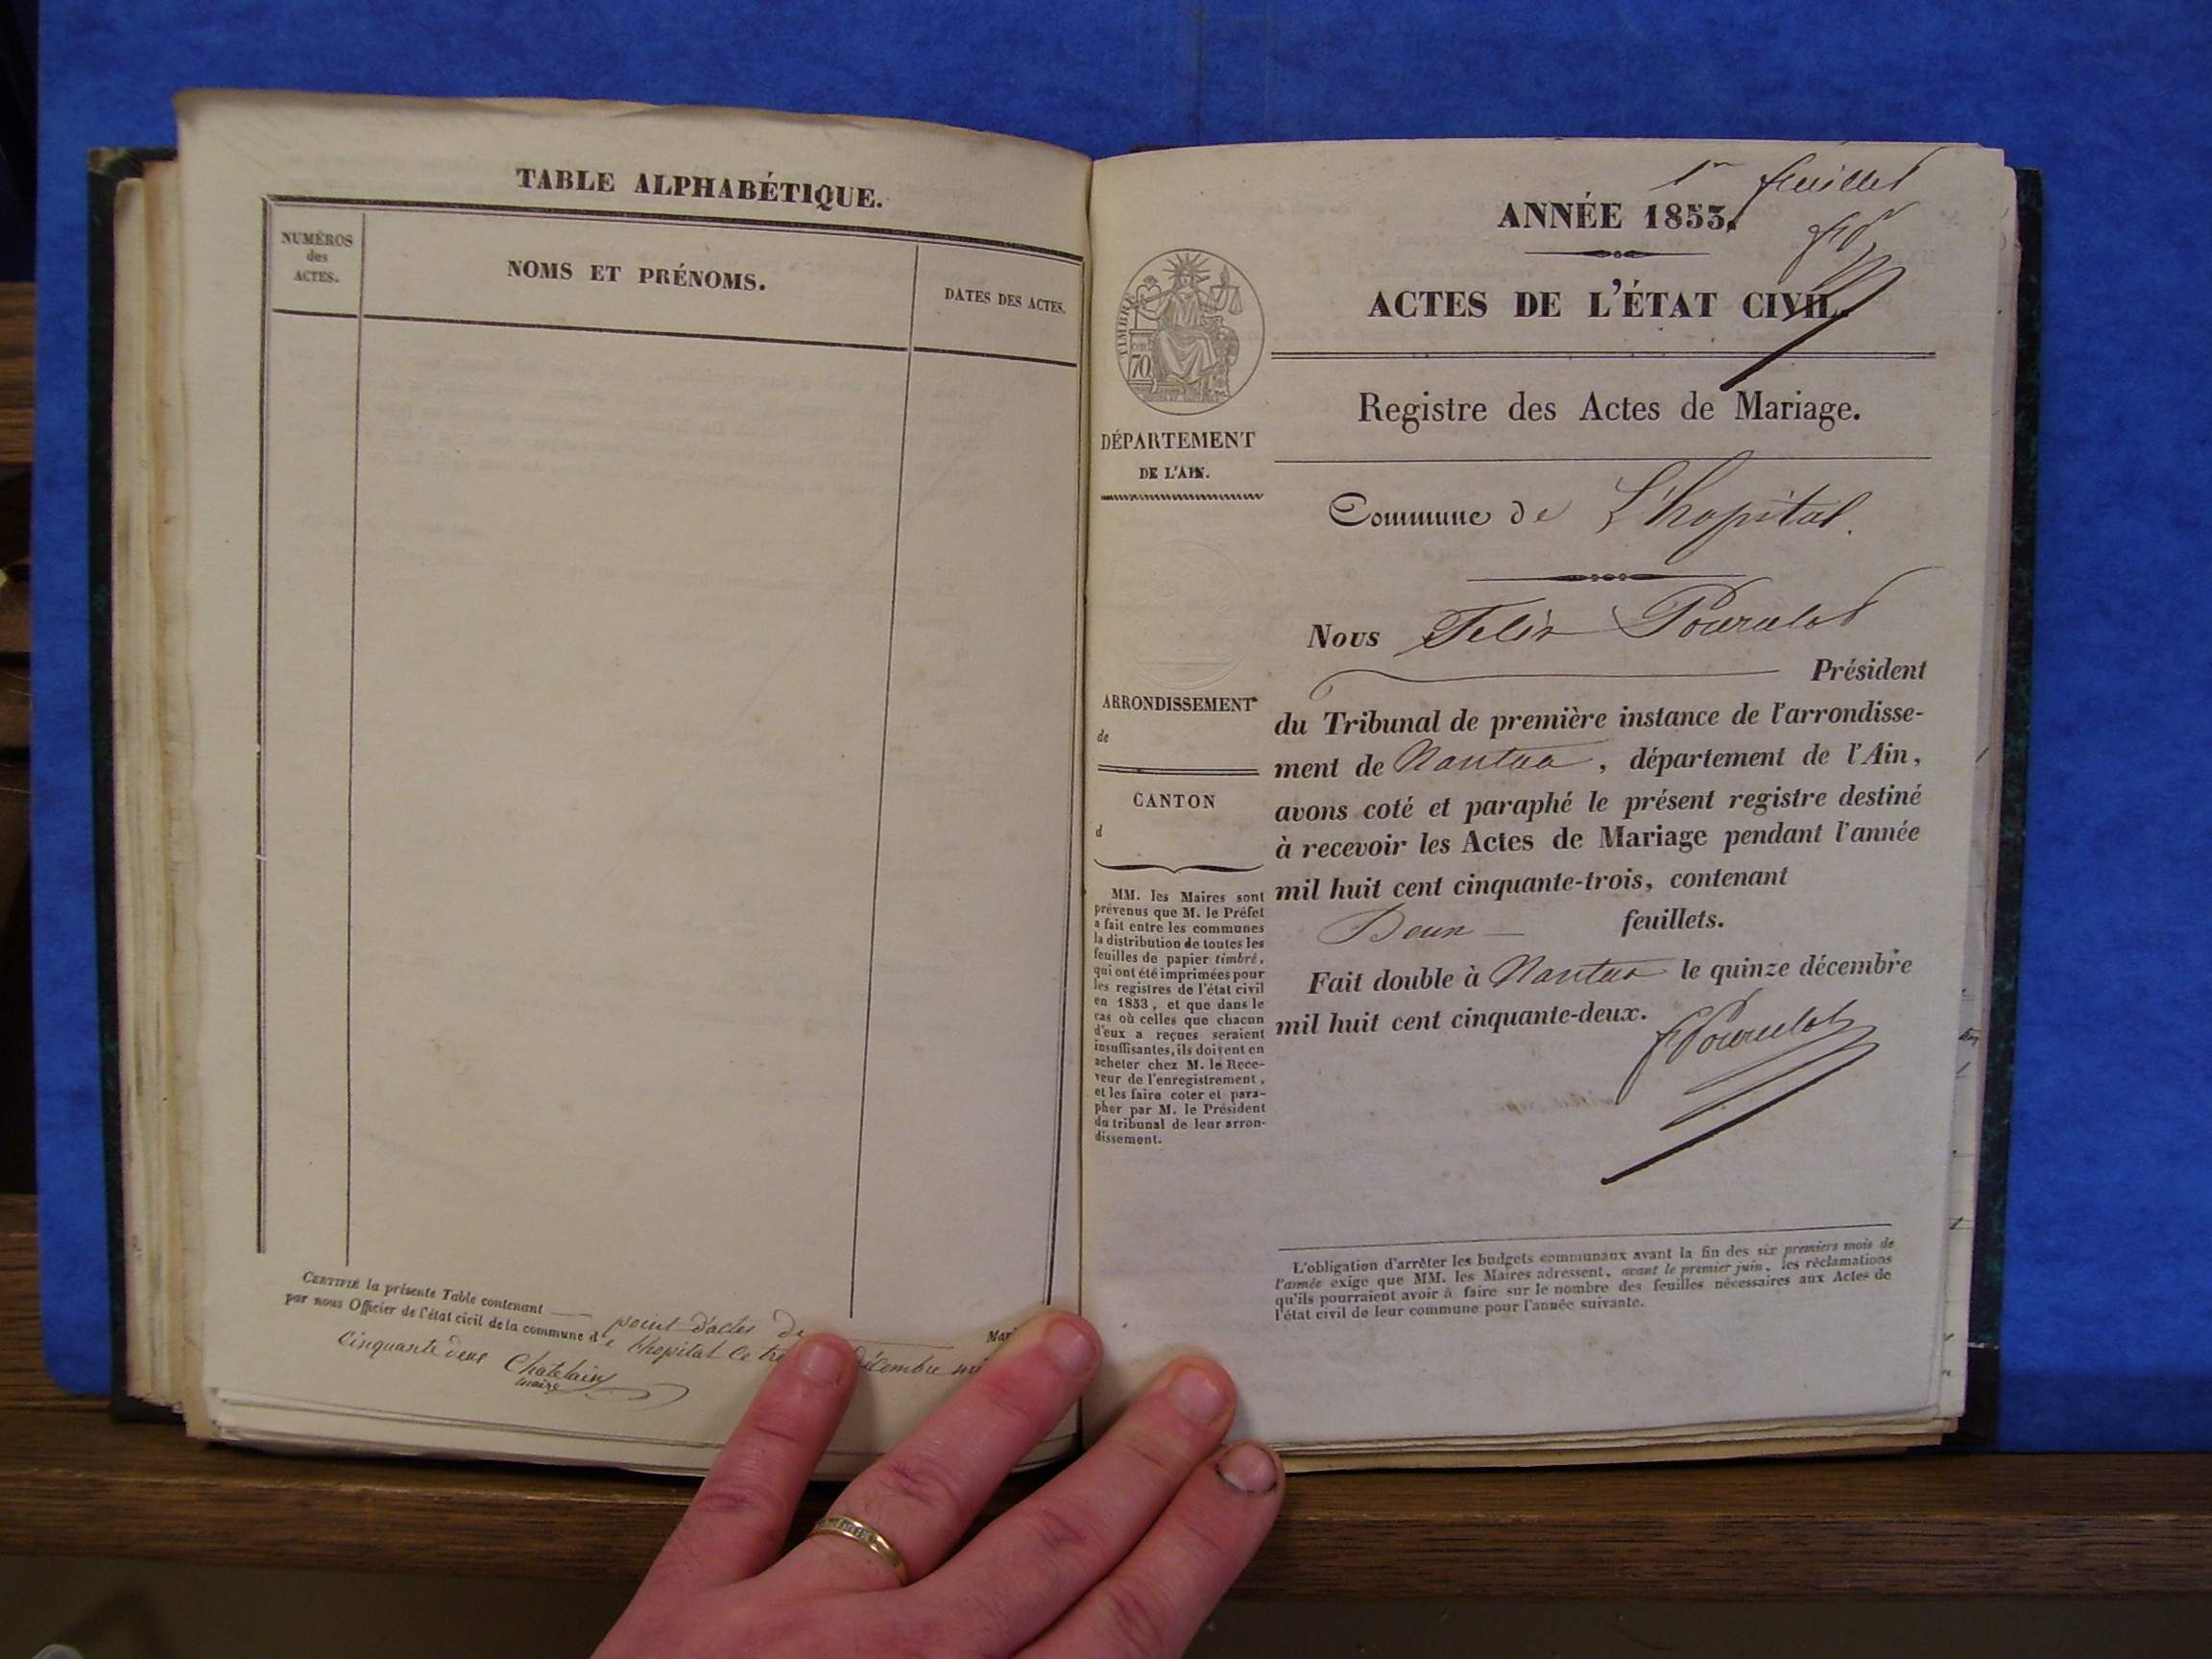 TABLE ALPHABÉTIQUE.
NUMÉROS
des
ACTES.
NOMS ET PRÉNOMS.
DATES DES ACTES.
CERTIFIÉ la présente Table contenant point d'actes de Mari
par nous Officier de l'état civil de la commune de l'hopital le décembre
cinquante deux Chatelain
maire
1er feuillet
ANNÉE 1853.
ACTES DE L'ÉTAT CIVIL.
TIMBRE
70
DÉPARTEMENT
DE L'AIN.
ARRONDISSEMENT
de
CANTON
d
MM. les Maires sont
prévenus que M. le Préfet
a fait entre les communes
la distribution de toutes les
feuilles de papier timbré,
qui ont été imprimées pour
les registres de l'état civil
en 1853, et que dans le
cas où celles que chacun
d'eux a reçues seraient
insuffisantes, ils doivent en
acheter chez M. le Rece-
veur de l'enregistrement,
et les faire coter et para-
pher par M. le Président
du tribunal de leur arron-
dissement.
Registre des Actes de Mariage.
Commune de L'hopital.
Nous Felix Pourcelot
Président
du Tribunal de première instance de l'arrondisse-
ment de Nantua, département de l'Ain,
avons coté et paraphé le présent registre destiné
à recevoir les Actes de Mariage pendant l'année
mil huit cent cinquante-trois, contenant
Deux feuillets.
Fait double à Nantua le quinze décembre
mil huit cent cinquante-deux.
F Pourcelot
L'obligation d'arrêter les budgets communaux avant la fin des six premiers mois de
l'année exige que MM. les Maires adressent, avant le premier juin, les réclamations
qu'ils pourraient avoir à faire sur le nombre des feuilles nécessaires aux Actes de
l'état civil de leur commune pour l'année suivante.